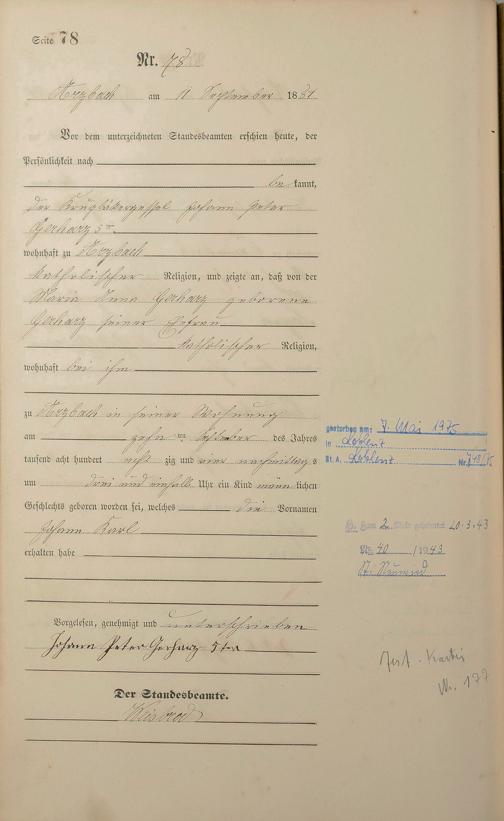 Seite 78
Nr. 78
Arzbach am 11 September 1884
Vor dem unterzeichneten Standesbeamten erschien heute, der
Persönlichkeit nach
be kannt,
der Krugbäckergeselle Johann Peter
Gerharz 5ter
wohnhaft zu Arzbach
katholischer Religion, und zeigte an, daß von der
Maria Anna Gerharz geborene
Gerharz seiner Ehefrau
katholischer Religion,
wohnhaft bei ihm
zu Arzbach in seiner Wohnung
am zehnten September des Jahres
tausend acht hundert acht zig und vier nachmittags
um drei und einhalb Uhr ein Kind männ lichen
Geschlechts geboren worden sei, welches die Vornamen
Johann Karl
erhalten habe
Vorgelesen, genehmigt und unterschrieben
Johann Peter Gerharz 5ter
Der Standesbeamte.
Weisbrod
gestorben am: 7. Mai 1975
in Koblenz
St. A. Koblenz Nr.
Zum 2. Male geheiratet 20.3.43
Nr. 40 /1943
St.
Test. Kartei
Nr. 177